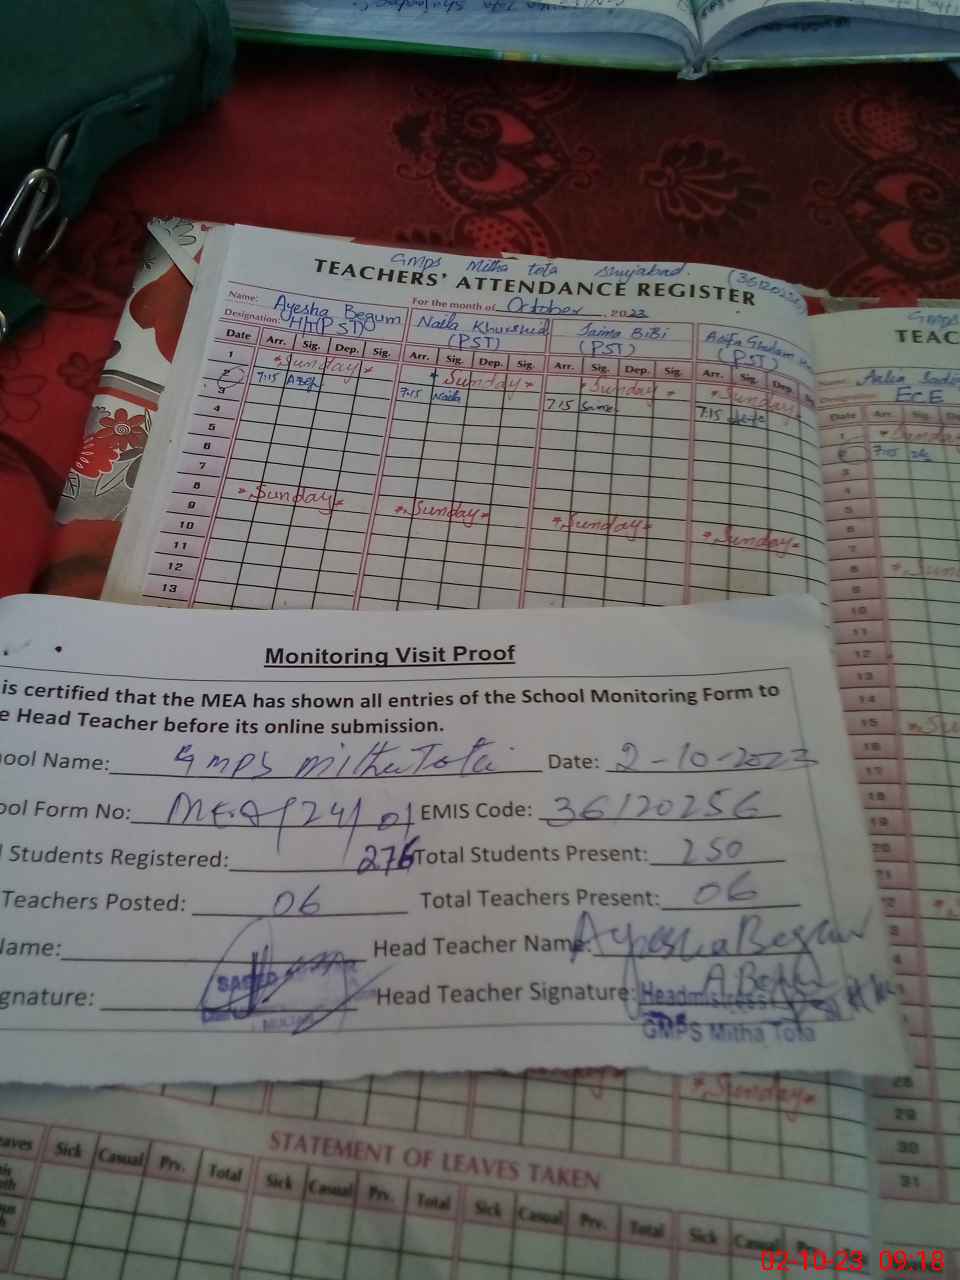 GMPS Mitha Tota Shujabad. (36120256)
TEACHERS' ATTENDANCE REGISTER
Name: Ayesha Begum For the month of October, 2023
Designation: HT(PST) Naila Khurshid Saima BiBi Asifa Ghulam
(PST) (PST) (PST)
Date Arr. Sig. Dep. Sig. Arr. Sig. Dep. Sig. Arr. Sig. Dep. Sig. Arr. Sig. Dep.
1 *Sunday* *Sunday* *Sunday* *Sunday*
2 7:15 7:15 Naila 7:15 Saima 7:15
3
4
5
6
7
8 *Sunday* *Sunday* *Sunday* *Sunday*
9
10
11
12
13
GMPS
TEAC
Name:
Designation: ECE
Date Arr. Sig. D
1 *Sunday
2 7:15
3
4
5
6
7
8 *Sun
9
10
11
12
13
14
15 *Su
16
17
18
19
20
21
Monitoring Visit Proof
is certified that the MEA has shown all entries of the School Monitoring Form to
e Head Teacher before its online submission.
ool Name: GMPS Mitha Tota Date: 2-10-2023
ool Form No: MEA/24/01 EMIS Code: 36120256
l Students Registered: 276 Total Students Present: 250
Teachers Posted: 06 Total Teachers Present: 06
Name: Head Teacher Name: Ayesha Begum
gnature: Head Teacher Signature: A Begum
Headmistress
GMPS Mitha Tota
*Sunday*
29
30
31
STATEMENT OF LEAVES TAKEN
eaves Sick Casual Prv. Total Sick Casual Prv. Total Sick Casual Prv. Total Sick Casual Prv.
02-10-23 09:18